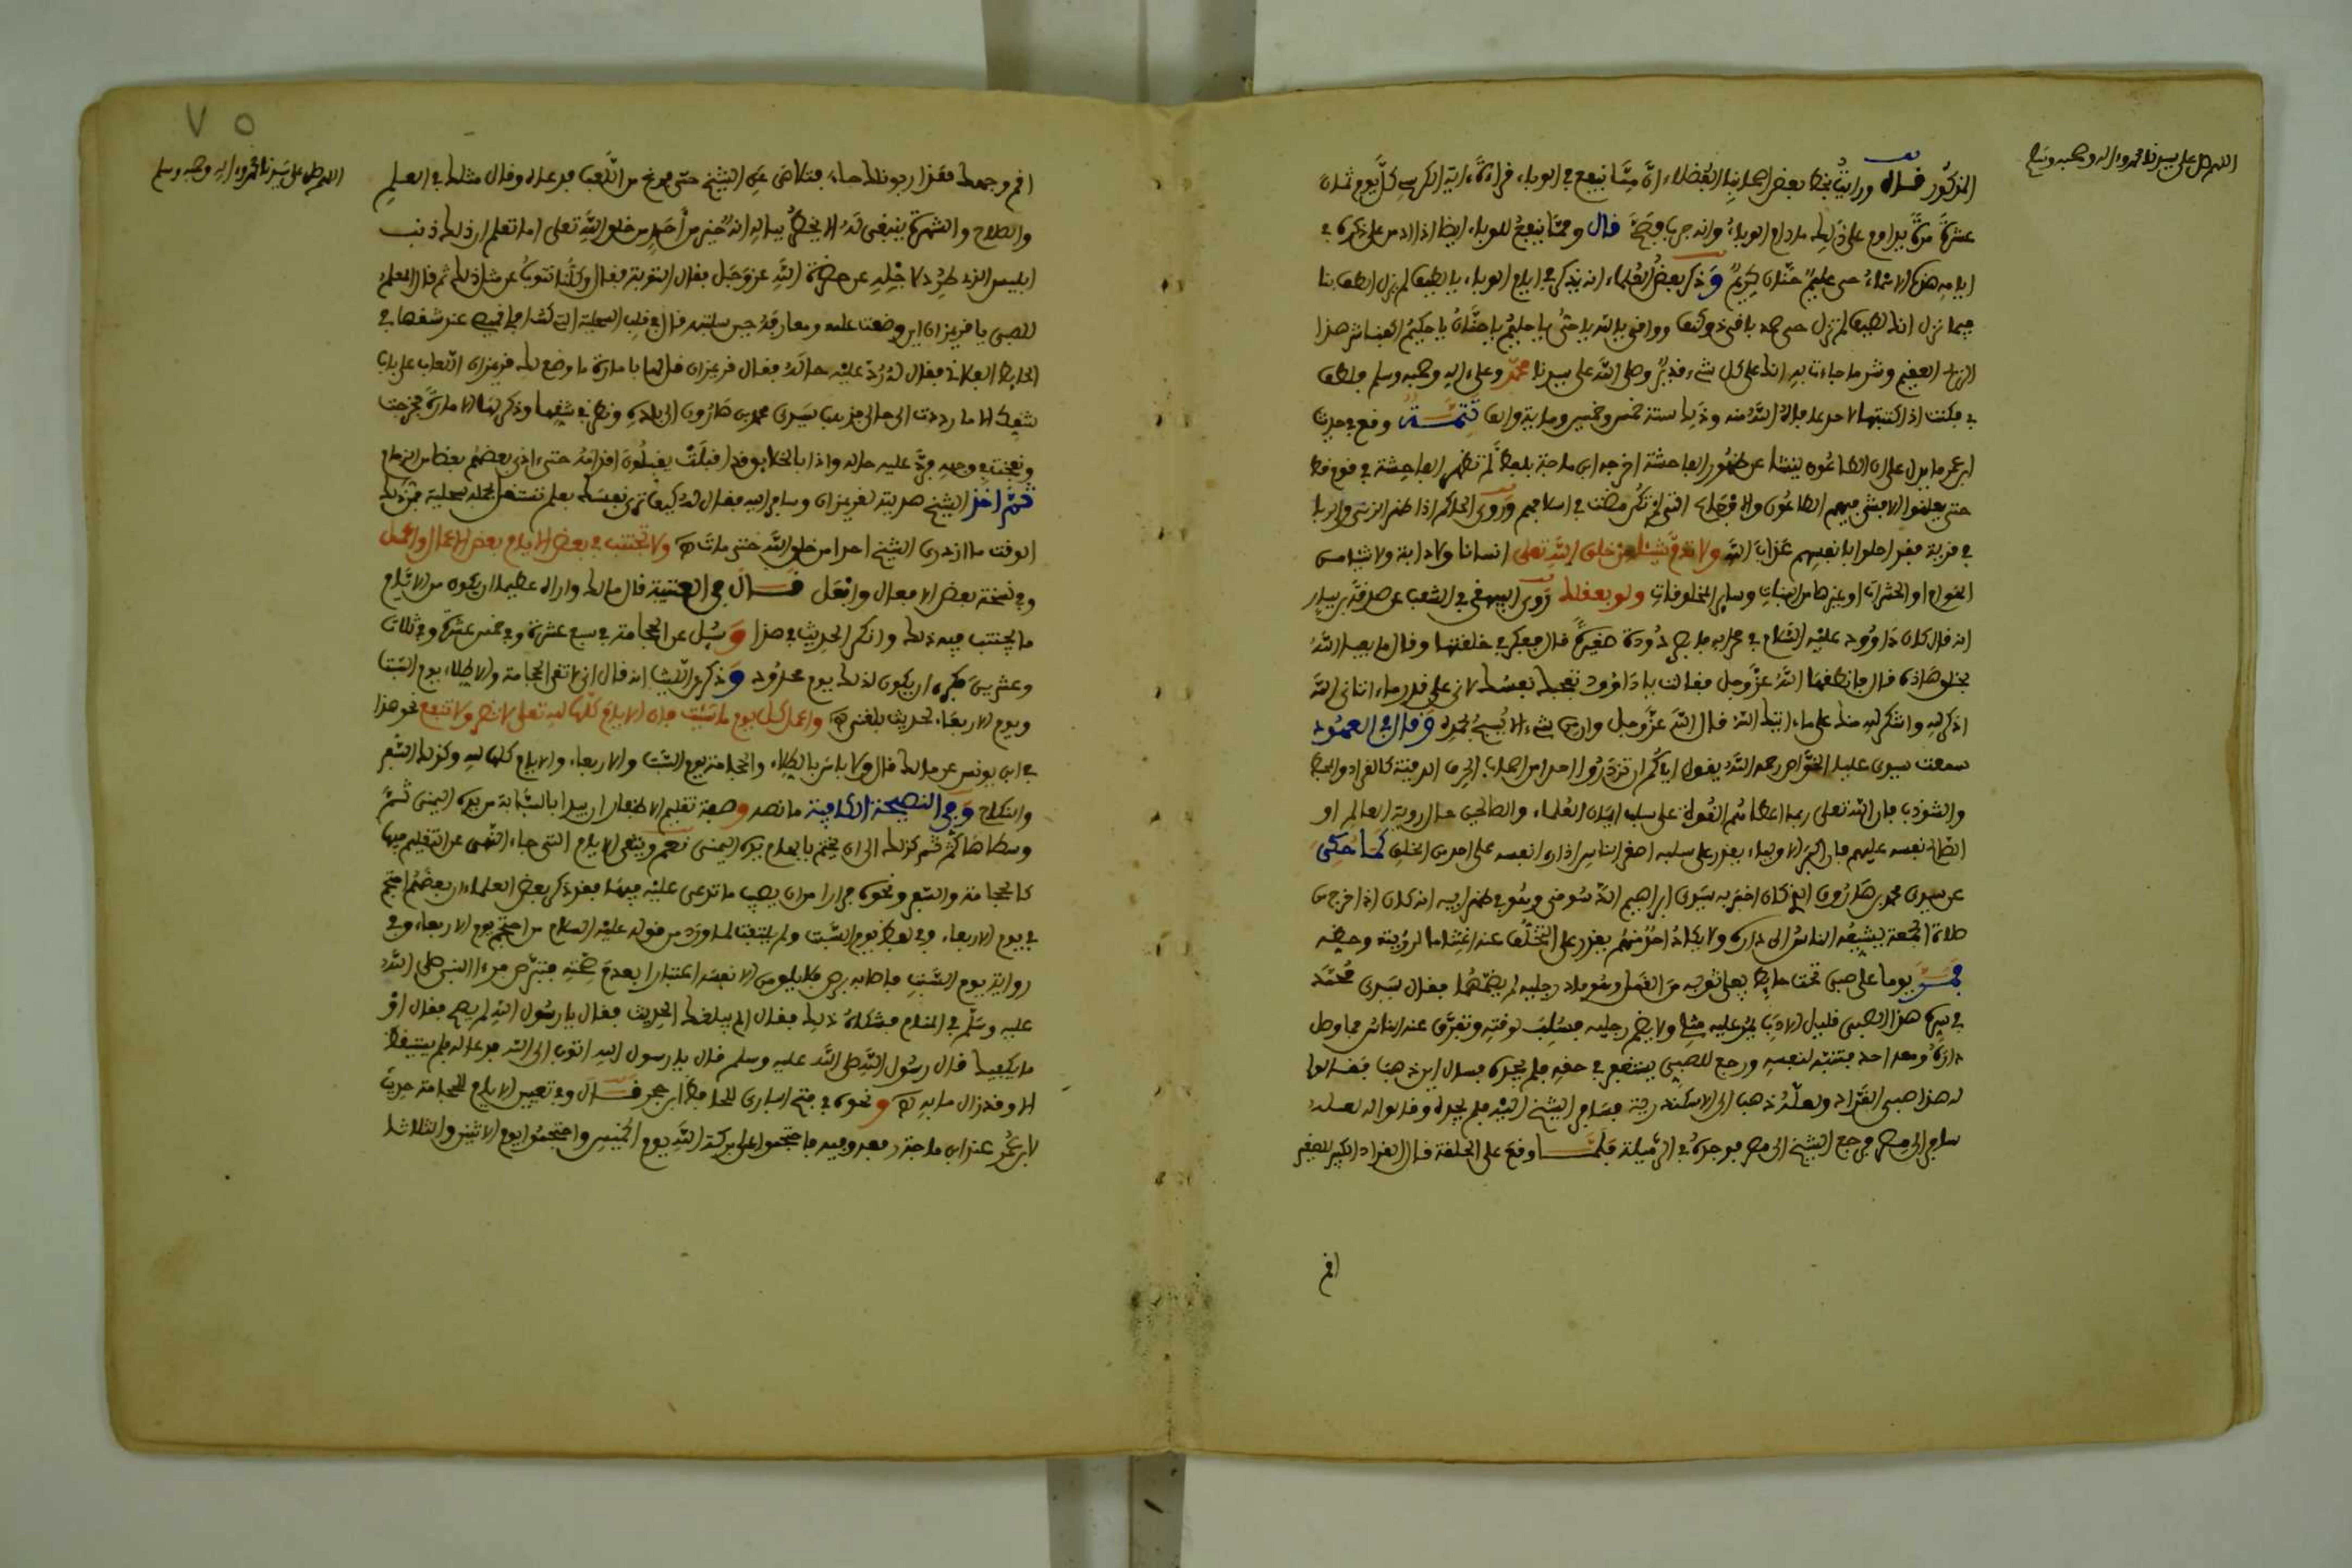 اللهم صل على سيدنا محمد وءاله وصحبه وسلم
المذكور قال ورايت بخط بعض اصحابنا الفضلاء ان مما ينفع في الوباء فراءة ءاية الكرسي كل يوم ثمان
عشرة مرة يداوم على ذلك مادام الوباء وانه جربه فصح قال ومما ينفع للوباء ايضا اذا
ايامه هذه الاسماء حي عليم حنان كريم وذكر بعض العلماء انه يذكر في ايام الوباء يا لطيف لم يزل الطف بنا
فيما نزل انك لطيف لم تزل حي صمد باقي ذو كنف وواقي يا الله يا حي يا حليم يا حنان يا حكيم اكفنا شر هذا
وشر ما جاءنا به انك على كل شيء قدير وصلى الله على سيدنا محمد وعلى ءاله وصحبه وسلم
فكنت اذا كتبتها لاحد عافاه الله منه وذلك سنة خمس وخمسين ومايه والف تتمة وقع في حديث
ابن عمر ما يدل على ان الطاعون ينشا عن ظهور الفاحشة اخرجه ابن ماجة بلفظ لم تظهر الفاحشة في قوم قط
حتى يعلنوا الا فشى فيهم الطاعون والاوجاع التي لم تكن مضت في اسلافهم وروى الحاكم اذا ظهر الزنى والربا
في قرية فقد احلوا بانفسهم عذاب الله ولا تذم شيئا من خلق الله تعلى انسانا ولا دابة ولا شيئا من
الهوام او الحشرات او غيرها من النبات وساير المخلوقات ولو بقلبك روى البيهقي في الشعب عن صدقة بن يسار
انه قال كان داوود عليه السلام في محرابه فابصر دودة صغيرة قال ففكر في خلقتها وقال ما يعبا الله
بخلق هاذه قال فانطقها الله عز وجل فقالت يا داوود تعجبك نفسك لاني على قدر ما ءاتاني الله
اذكر لله واشكر له منك على ما ءاتيك الله قال الله عز وجل وان من شيء الا يسبح بحمده وقال في العهود
سمعت سيدي عليا الخواص رحمه الله يقول اياكم ان تزدروا احدا من اصحاب الحرف الدنية كالقراد والمخبط
والمشوذب فان الله تعلى ربما اعطاهم القوة على سلب ايمان العلماء والصالحين حال روية العالم او
الصالح نفسه عليهم فان اكبر الاولياء يقدر على سلبه اصغر الناس اذا راى نفسه على احد من الخلق كما حكي
عن سيدي محمد بن هارون الذي كان اخبر به سيدي ابراهيم الدسوقي وهو في ظهر ابيه انه كان اذا خرج من
صلاة الجمعة يشيعه الناس الى داره ولا يكاد احد منهم يقدر على التخلف عنه اغتناما لرؤيته وحظه
فمر يوما على صبي تحت حايط يفلي ثوبه من القمل وهو ماد رجليه لم يضمهما فقال سيدي محمد
في سره هذا الصبي قليل الادب يمر عليه مثلي ولا يضم رجليه فسلب لوقته وتفرق عنه الناس فما وصل
داره ومعه احد فتنبه لنفسه ورجع للصبي يستغفر في حقه فلم يجده فسال اين ذهب فقالوا
له هذا صبي القراد ولعله ذهب الى الاسكندرية فسافر الشيخ اليه فلم يجده وقالوا له لعله
سافر الى مصر فرجع الشيخ الى مصر فوجده في الرميلة فلما وقع على الحلقة قال القراد الكبير للصغير
افم
٧٥
اللهم صل على سيدنا محمد وءاله وصحبه وسلم
افم وجهك فهذا زبونك جاء فتقاضى عن الشيخ حتى فرغ من اللعب فدعاه وقال مثلك في العلم
والصلاح والشهرة ينبغي له الا يخطر بباله انه خير من احد من خلق الله تعلى اما تعلم ان ذلك ذنب
ابليس الذي طرد لاجله عن حضرة الله عز وجل فقال التوبة فقال وكلنا نتوب عن مثل ذلك ثم قال المعلم
للصبي يا قريزان اين وضعت علمه ومعارفه حين سلبته قال في قلب السحلية التي كنت افلي فيه عند شقها في
الحايط الفلاني فقال له رد عليه حاله فقال قريزان قل لها بامارة ما وضع لك قريزان اللعاب على باب
شقك الا ما رددت الى حالي فذهب سيدي محمد بن هارون الى بلده ونظر في شقها وذكر لها الامارة فخرجت
ونفخت في وجهه فرد عليه حاله واذا بالخلايق قد اقبلت يقبلون اقدامه حتى ءاذى بعضهم بعضا من الزحام
ثم اخذ الشيخ هدية لقريزان وسافر اليه فقال له كيف ترى نفسك بعلم تستقل بحمله سحلية فمن ذلك
الوقت ما ازدرى الشيخ احدا من خلق الله حتى مات ولا تجتنب في بعض الايام بعض الاعمال والعمل
وفي نسخة بعض الافعال وافعل قال في العتبية قال مالك واراه عظيما ان يكون من الايام
ما يجتنب فيه ذلك وانكر الحديث في هذا وسيل عن الحجامة في سبع عشرة وفي خمس عشرة وفي ثلاث
وعشرين فكره ان يكون لذلك يوم محدود وذكر عن الليث انه قال اني لاتقي الحجامة والاطلاء يوم السبت
ويوم الاربعاء لحديث بلغني واعمل كل يوم ما شيت فان الايام كلها لله تعلى لا تضر ولا تنفع نحو هذا
في ابن يونس عن مالك قال ولا باس بالاطلاء والحجامة يوم السبت والاربعاء والايام كلها لله وكذلك السفر
والنكاح وفي النصيحة الكافية ما نصه وصفة تقليم الاظفار ان يبدا بالسبابة من يده اليمنى ثم
وسطاها ثم كذلك الى ان يختم بابهام يده اليمنى نعم ويتقي الايام التي جاء النهي عن التقليم فيها
كالحجامة والسفر ونحوه فرارا من ان يصيبه ما تدعى عليه فيها فقد ذكر بعض العلماء ان بعضهم احتجم
في يوم الاربعاء وفي لفظ يوم السبت ولم يلتفت لما ورد من قوله عليه السلام من احتجم يوم الاربعاء وفي
رواية يوم السبت فاصابه برص فلا يلومن الا نفسه اعتبارا بعدم صحته فتبرص فراى النبي صلى الله
عليه وسلم في المنام فشكاه ذلك فقال الم يبلغك الحديث فقال يا رسول الله لم يصح فقال او
ما يكفيك قال رسول الله صلى الله عليه وسلم قال يا رسول الله اتوب الى الله فدعا له فلم يستيقظ
الا وقد زال ما به ونحوه في فتح الباري للحافظ ابن حجر قال وفي تعيين الايام للحجامة حديث
لابن عمر عند ابن ماجة رفعه وفيه فاحتجموا على بركة الله يوم الخميس واحتجموا يوم الاثنين والثلاثاء